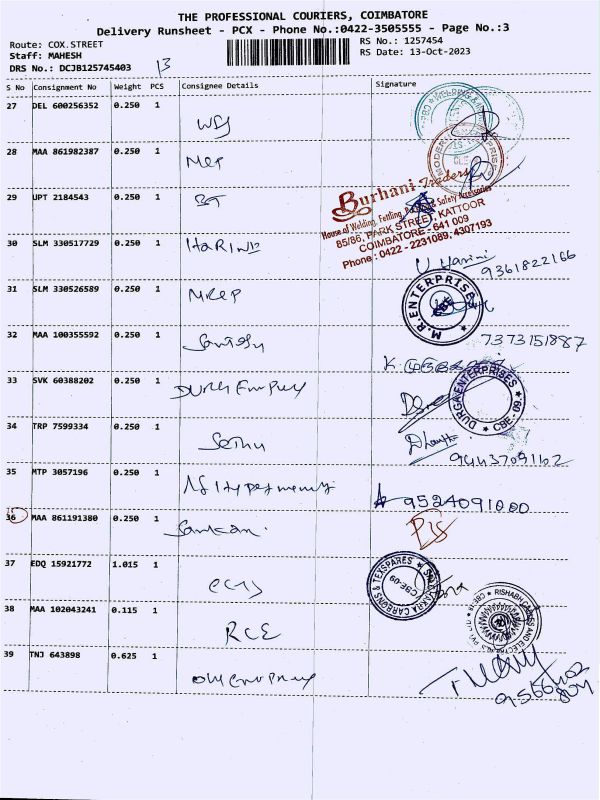 THE PROFESSIONAL COURIERS, COIMBATORE
Delivery Runsheet - PCX - Phone No.:0422-3505555 - Page No.:3
Route: COX.STREET
RS No.: 1257454
Staff: MAHESH
RS Date: 13-Oct-2023
DRS No.: DCJB125745403
13
S No Consignment No Weight PCS Consignee Details Signature
27 DEL 600256352 0.250 1
28 MAA 861982387 0.250 1 MEP
29 UPT 2184543 0.250 1 BT
Burhani Traders
House of Welding, Fettling, & Safety Accessories
85/86, PARK STREET, KATTOOR
COIMBATORE - 641 009
Phone : 0422 - 2231089, 4307193
30 SLM 330517729 0.250 1 HARINI
V. Harini
9361822166
31 SLM 330526589 0.250 1 MREP
M.R. ENTERPRISES
CBE
32 MAA 100355592 0.250 1
7373151887
33 SVK 60388202 0.250 1
DURGA ENTERPRISES
CBE - 09.
34 TRP 7599334 0.250 1 Sethu
9443709162
35 MTP 3057196 0.250 1
9524091000
36 MAA 861191380 0.250 1 Sankar.
37 EDQ 15921772 1.015 1
CARSONS & TEXSPARES
CBE-09
38 MAA 102043241 0.115 1 RCE
39 TNJ 643898 0.625 1